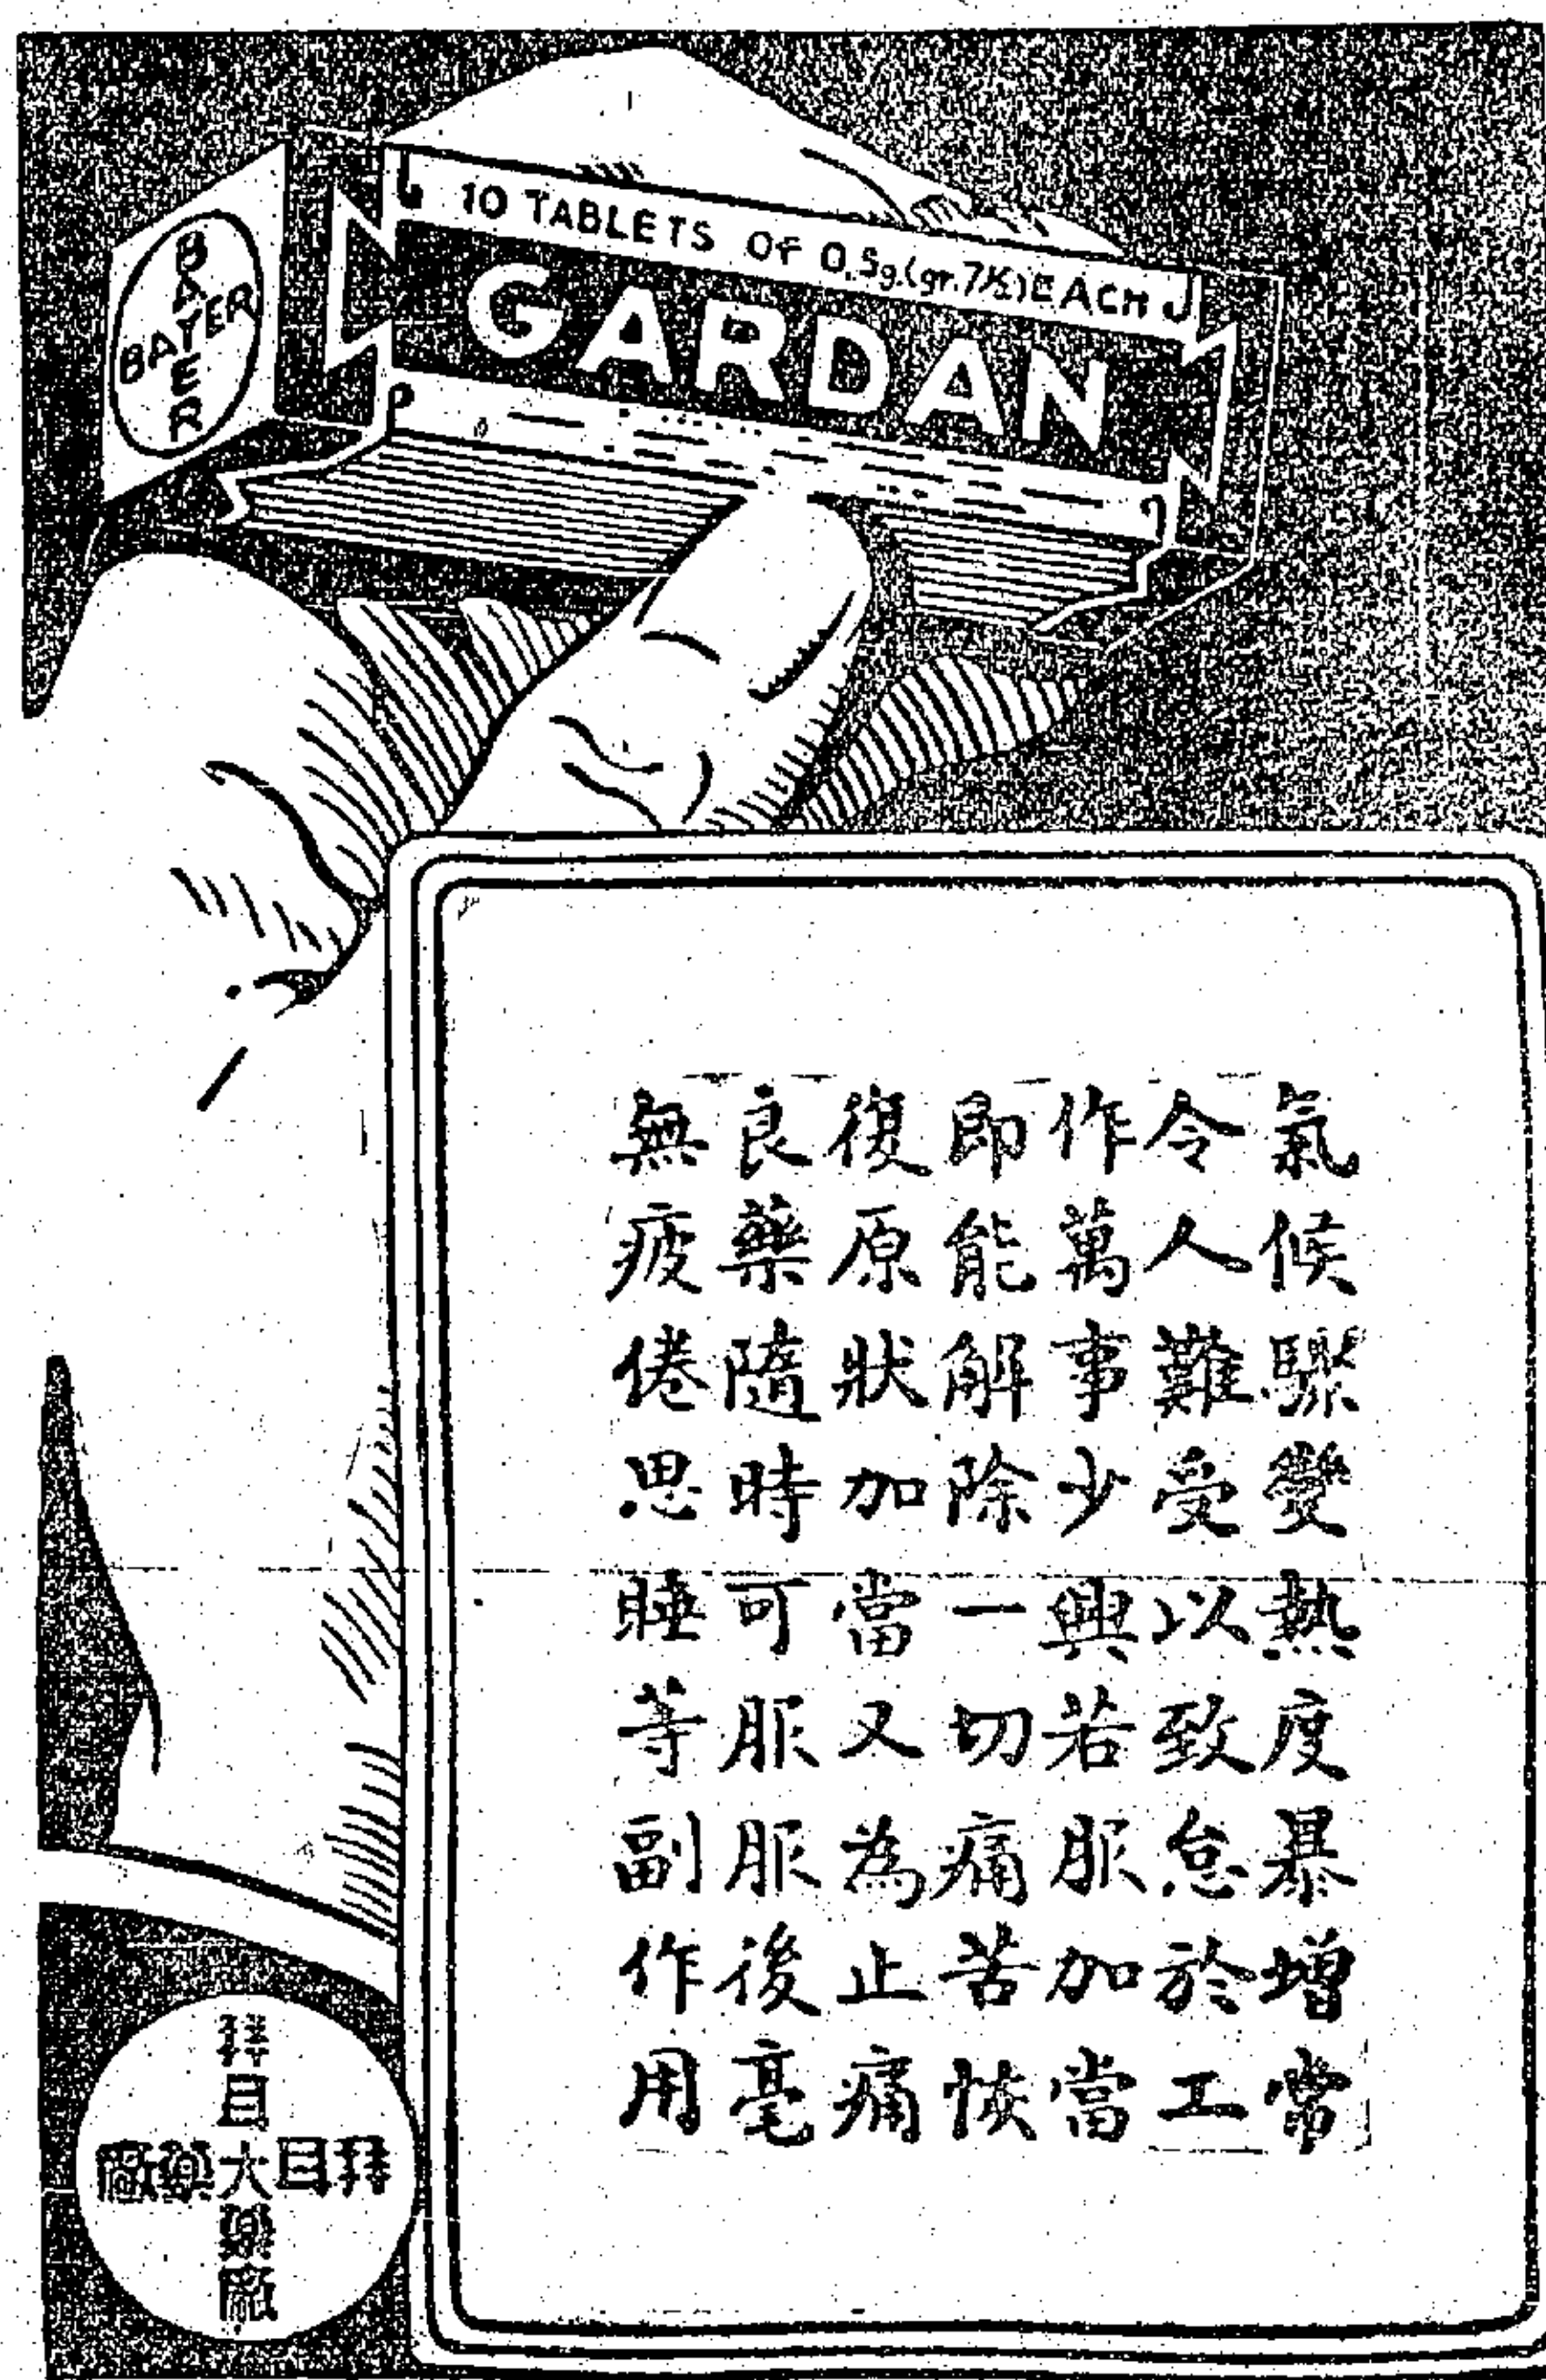 10 TABLETS OF 0.5g.(gr.7½)EACH
GARDAN
BAYER
BAYER
氣候驟變熱度暴增常
令人難受以致怠於工
作萬事少興若服加當
即能解除一切痛苦恢
復原狀加當又為止痛
良藥隨時可服服後毫
無疲倦思睡等副作用
拜耳大藥廠
拜耳大藥廠